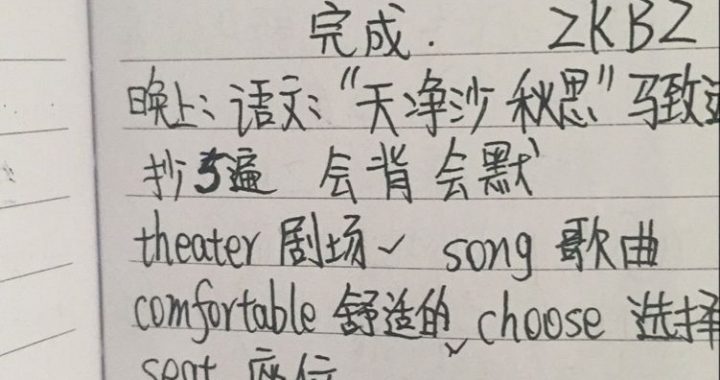 完成. ZKBZ
晚上：语文："天净沙 秋思"马致远
抄5遍 会背会默
theater 剧场✓ song 歌曲
comfortable 舒适的、choose 选择
seat 座位